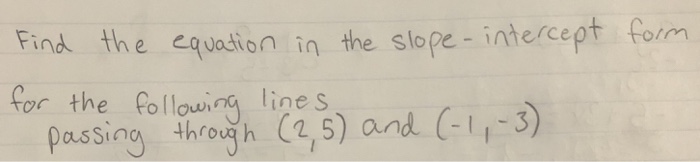 Find the equation in the slope-intercept form
for the following lines
passing through (2,5) and (-1,-3)